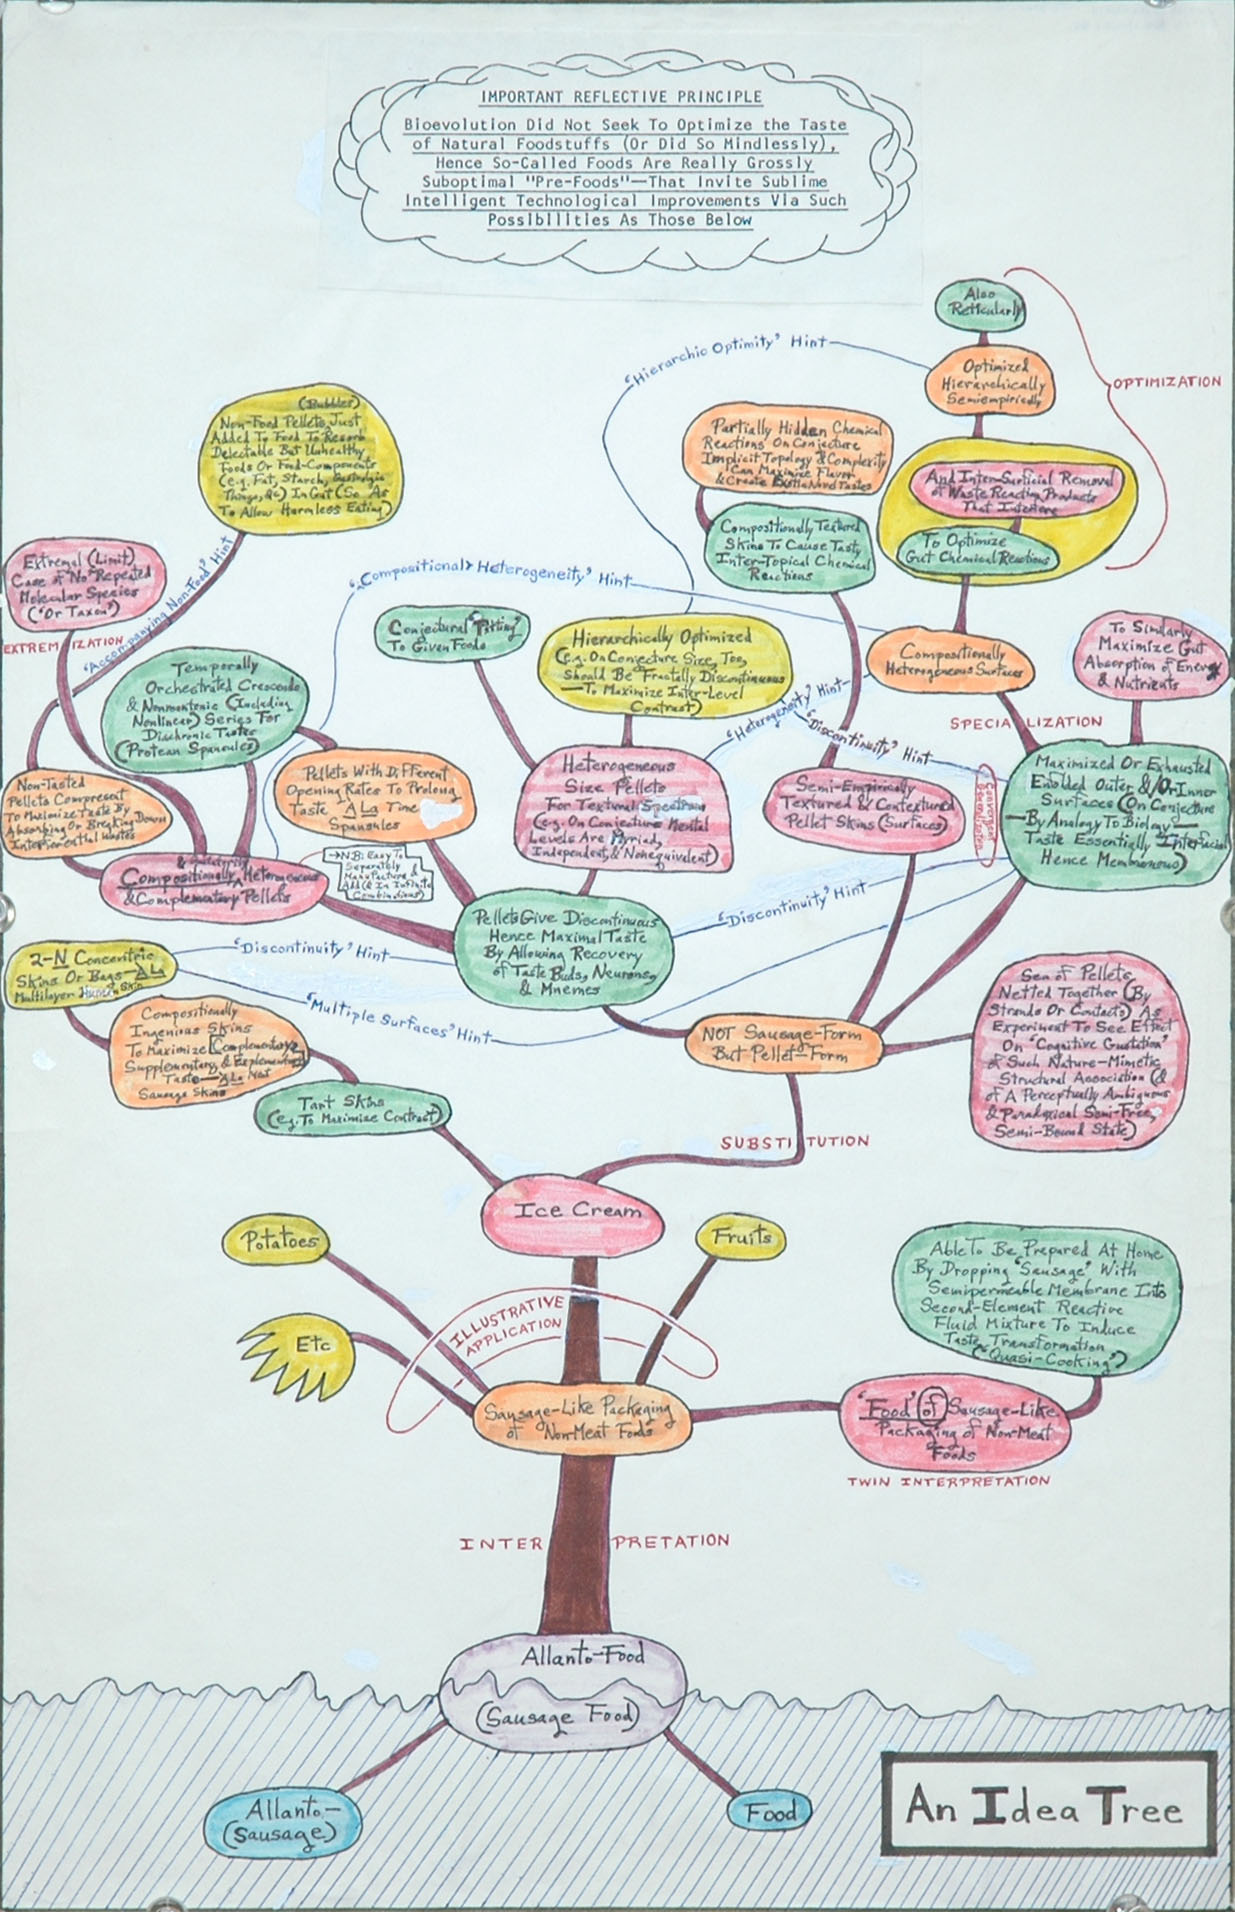 IMPORTANT REFLECTIVE PRINCIPLE
Bioevolution Did Not Seek To Optimize the Taste
of Natural Foodstuffs (Or Did So Mindlessly),
Hence So-Called Foods Are Really Grossly
Suboptimal "Pre-Foods"—That Invite Sublime
Intelligent Technological Improvements Via Such
Possibilities As Those Below
Also
Reticularly
Optimized
Hierarchically
Semiempirically
OPTIMIZATION
'Hierarchic Optimity' Hint
And Inter-Surficial Removal
of Waste Reaction Products
That Interfere
To Optimize
Gut Chemical Reactions
Partially Hidden Chemical
Reactions On Conjecture
Implicit Topology & Complexity
Can Maximize Flavor
& Create Exotic Novel Tastes
Compositionally Textured
Skins To Cause Tasty
Inter-Topical Chemical
Reactions
(Bubbles)
Non-Food Pellets Just
Added To Food To Resorb
Delectable But Unhealthy
Foods Or Food-Components
(e.g. Fat, Starch,
Things, &c) In Gut (So As
To Allow Harmless Eating)
Extremal (Limit)
Case of No Repeated
Molecular Species
('Or Taxon')
EXTREMIZATION
'Accompanying Non-Food' Hint
'Compositional> Heterogeneity' Hint
Temporally
Orchestrated Crescendo
& Nonmonotonic (Including
Nonlinear) Series For
Diachronic Tastes
(Protean Spansules)
Conjectural 'Pitting'
To Given Foods
Hierarchically Optimized
(e.g. On Conjecture Size, Too,
Should Be Fractally Discontinuous
—To Maximize Inter-Level
Contrast)
Compositionally
Heterogeneous Surfaces
To Similarly
Maximize Gut
Absorption of Energy
& Nutrients
SPECIALIZATION
'Heterogeneity' Hint
'Discontinuity' Hint
Non-Tasted
Pellets Compresent
To Maximize Taste By
Absorbing Or Breaking Down
Interferential Wastes
Pellets With Different
Opening Rates To Prolong
Taste À La Time
Spansules
Heterogeneous
Size Pellets
For Textural Spectrum
(e.g. On Conjecture Mental
Levels Are Myriad,
Independent, & Nonequivalent)
Semi-Empirically
Textured & Contextured
Pellet Skins (Surfaces)
Convergent
Maximized Or Exhausted
Enfolded Outer &/Or Inner
Surfaces (On Conjecture
—By Analogy To Biology—
Taste Essentially Interfacial
Hence Membranous)
Compositionally Heterogeneous
& Complementary Pellets
→NB: Easy To
Separately
Manufacture &
Add (& In Infinite
Combinations)
Pellets Give Discontinuous
Hence Maximal Taste
By Allowing Recovery
of Taste Buds, Neurons,
& Mnemes
'Discontinuity' Hint
2-N Concentric
Skins Or Bags—À La
Multilayer Human Skin
'Discontinuity' Hint
'Multiple Surfaces' Hint
Compositionally
Ingenious Skins
To Maximize Complementary,
Supplementary, &
Taste—À La Meat
Sausage Skins
Tart Skins
(e.g. To Maximize Contrast)
NOT Sausage-Form
But Pellet-Form
Sea of Pellets
Netted Together (By
Strands Or Contacts) As
Experiment To See Effect
On 'Cognitive Gustation'
of Such Nature-Mimetic
Structural Association (&
of A Perceptually Ambiguous
& Paradoxical Semi-Free,
Semi-Bound State)
SUBSTITUTION
Ice Cream
Potatoes
Fruits
Etc
ILLUSTRATIVE
APPLICATION
Able To Be Prepared At Home
By Dropping 'Sausage' With
Semipermeable Membrane Into
Second-Element Reactive
Fluid Mixture To Induce
Taste Transformation
('Quasi-Cooking')
Sausage-Like Packaging
of Non-Meat Foods
'Food' of Sausage-Like
Packaging of Non-Meat
Foods
TWIN INTERPRETATION
INTERPRETATION
Allanto-Food
(Sausage Food)
Allanto-
(Sausage)
Food
An Idea Tree